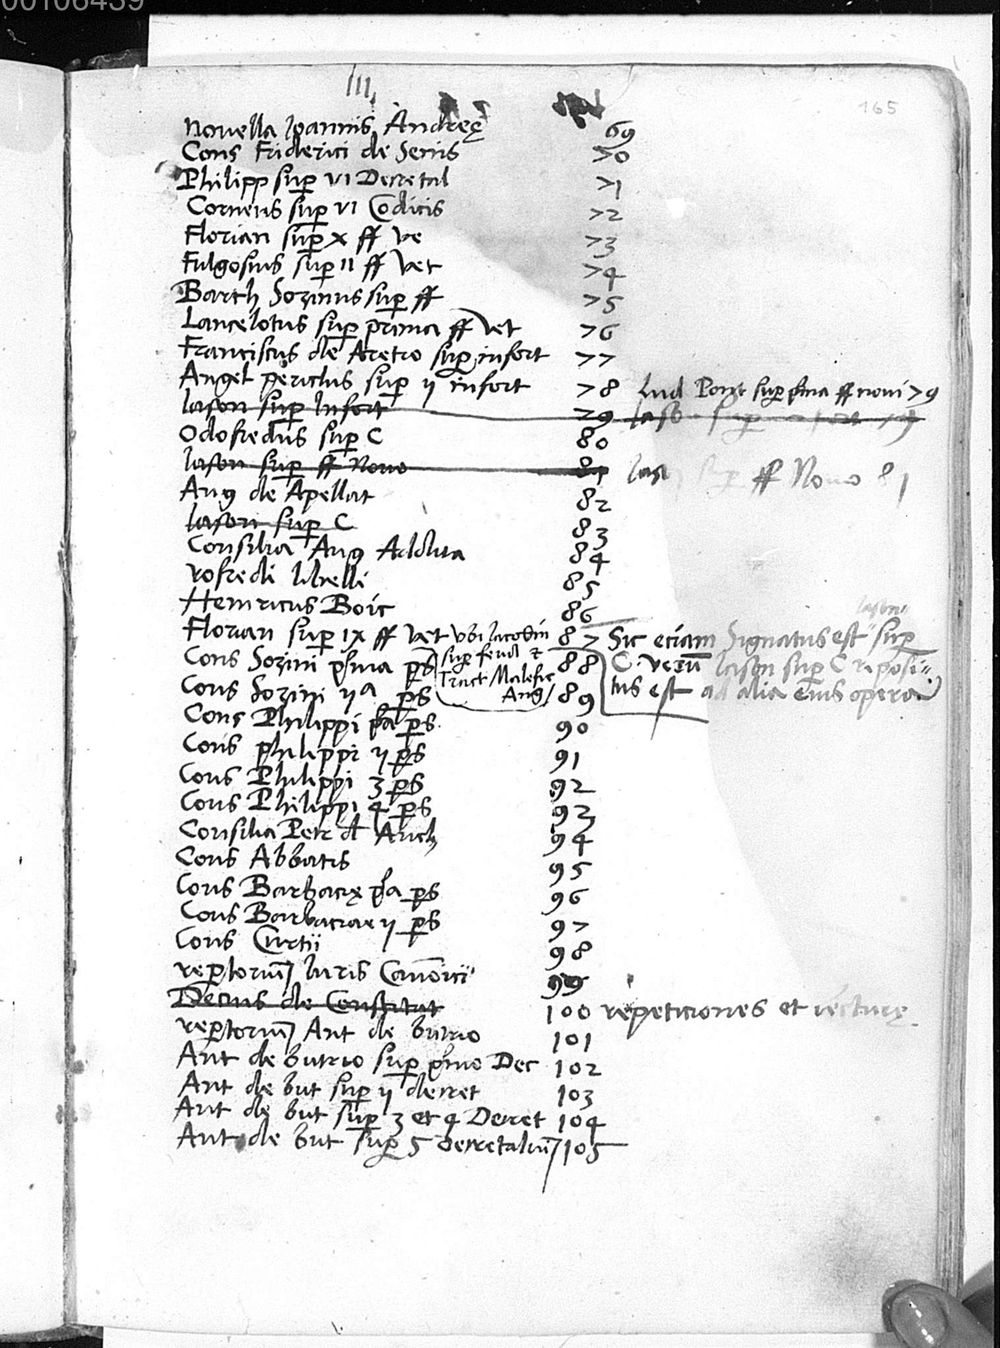 00106439
165
III
Novella Ioannis Andreę 69
Cons Friderici de Senis 70
Philipp sup VI Decretal 71
Corneus sup VI Codicis 72
Florian sup X ff ve 73
Fulgosius sup II ff vet 74
Barth Sozinus sup ff 75
Lancelotus sup prima ff vet 76
Franciscus de Aretio sup infort 77
Angel perichus sup ij infort 78 Lud Pont sup pma ff novi 79
Iason sup Infort 79 Iaso sup
Odofredus sup C 80
Iason sup ff Novo 81 Ias sup ff Novo 81
Ang de Apellat 82
Iason sup C 83
Consilia Ang Addita 84
rofredi libelli 85
Henricus Boic 86
Florian sup IX ff vet ubi Iacobin 87
sup feud et
Tract Malefic
Ang
Sic eciam Signatus est sup
C. verum Iason sup C reposi
tus est ad alia eius opera
Cons Sozini pma ps 88
Cons Sozini ija ps 89
Cons Philippi pa ps 90
Cons philippi ij ps 91
Cons Philippi 3 ps 92
Cons Philippi 4 ps 93
Consilia Petr d Anch 94
Cons Abbatis 95
Cons Barbacię pa ps 96
Cons Barbaciae ij ps 97
Cons Curtii 98
reptorium Iuris Canonici 99
Decius de Constitut 100 repeticiones et lecturę
reptorium Ant de butrio 101
Ant de butrio sup pmo Dec 102
Ant de but sup ij decret 103
Ant de but sup 3 et 4 Decret 104
Ant de but sup 5 decretalium 105